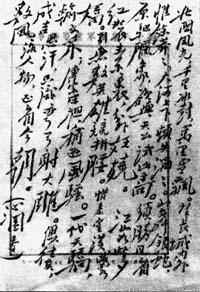 北国風光千里冰封万里雪飘望长城内外
惟余莽莽大河上下頓失滔滔山舞銀蛇
原馳腊象欲与天公試比高須晴日看
红装素裹分外妖嬈江山如此多
嬌引無數英雄競折腰惜秦皇漢武
略輸文采唐宗宋祖稍逊風騷。一代天驕
成吉思汗只識弯弓射大雕。俱往矣
數風流人物还看今朝。
毛泽东